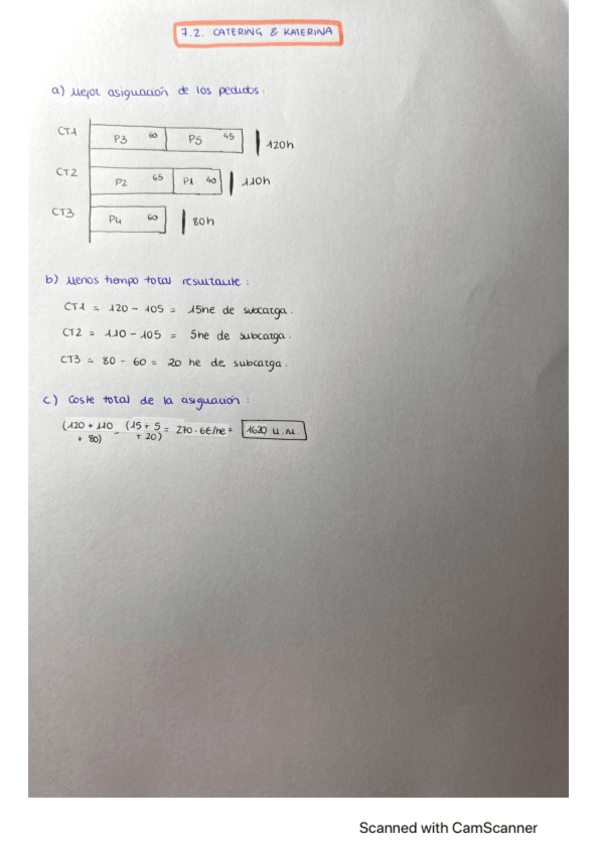 7.2. CATERING & KATERINA
a) Mejor asignación de los pedidos.
CT1 P3 60 P5 45 120h
CT2 P2 65 P1 40 110h
CT3 P4 60 80h
b) Menos tiempo total resultante:
CT1 = 120 - 105 = 15he de subcarga.
CT2 = 110 - 105 = 5he de subcarga.
CT3 = 80 - 60 = 20 he de subcarga.
c) Coste total de la asignación:
(120 + 110 + 80) - (15 + 5 + 20) = 270 · 6€/he = 1620 u.m.
Scanned with CamScanner